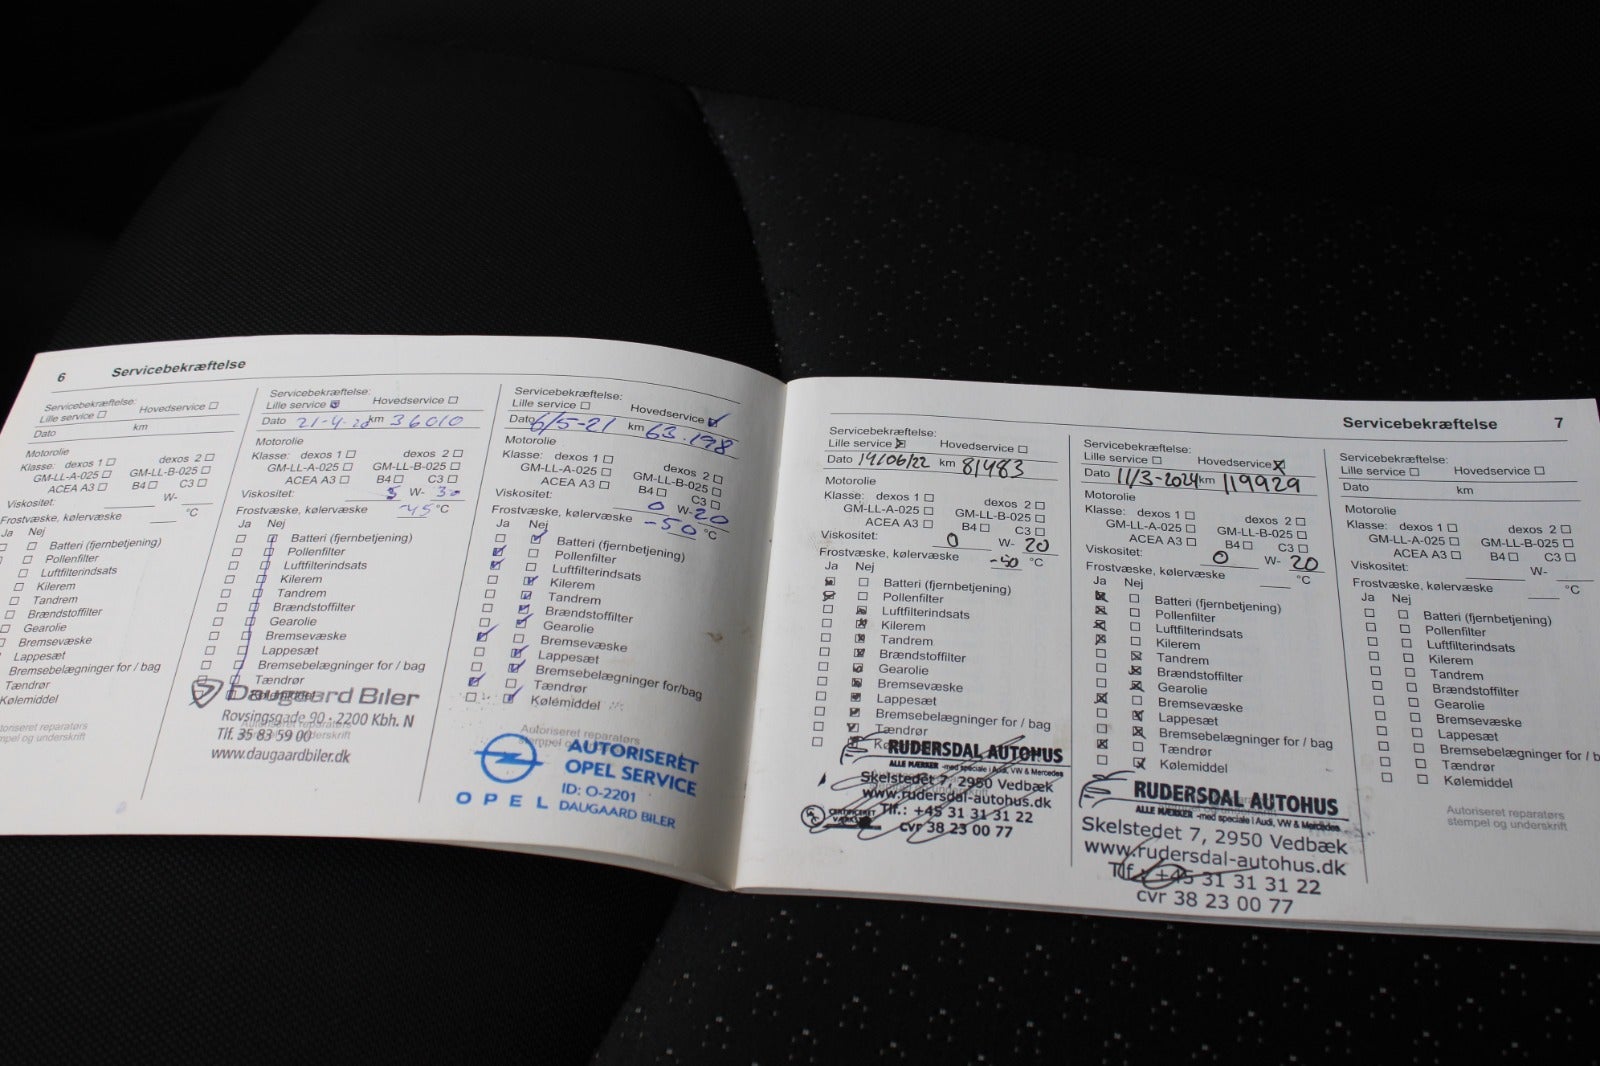 6 Servicebekræftelse
Servicebekræftelse:
Lille service Hovedservice
Dato km
Motorolie
Klasse: dexos 1 dexos 2
GM-LL-A-025 GM-LL-B-025
ACEA A3 B4 C3
Viskositet: W-
Frostvæske, kølervæske °C
Ja Nej
Batteri (fjernbetjening)
Pollenfilter
Luftfilterindsats
Kilerem
Tandrem
Brændstoffilter
Gearolie
Bremsevæske
Lappesæt
Bremsebelægninger for / bag
Tændrør
Kølemiddel
Autoriseret reparatørs
stempel og underskrift
Servicebekræftelse:
Lille service Hovedservice
Dato 21-4-20 km 36010
Motorolie
Klasse: dexos 1 dexos 2
GM-LL-A-025 GM-LL-B-025
ACEA A3 B4 C3
Viskositet: 5 W- 30
Frostvæske, kølervæske -45 °C
Ja Nej
Batteri (fjernbetjening)
Pollenfilter
Luftfilterindsats
Kilerem
Tandrem
Brændstoffilter
Gearolie
Bremsevæske
Lappesæt
Bremsebelægninger for / bag
Tændrør
Kølemiddel
Daugaard Biler
Rovsingsgade 90 - 2200 Kbh. N
Autoriseret reparatørs
Tlf. 35 83 59 00
www.daugaardbiler.dk
Servicebekræftelse:
Lille service Hovedservice
Dato 6/5-21 km 63.198
Motorolie
Klasse: dexos 1 dexos 2
GM-LL-A-025 GM-LL-B-025
ACEA A3 B4 C3
Viskositet: 0 W- 20
Frostvæske, kølervæske -50 °C
Ja Nej
Batteri (fjernbetjening)
Pollenfilter
Luftfilterindsats
Kilerem
Tandrem
Brændstoffilter
Gearolie
Bremsevæske
Lappesæt
Bremsebelægninger for/bag
Tændrør
Kølemiddel
Autoriseret reparatørs
stempel og underskrift
AUTORISERET
OPEL SERVICE
ID: O-2201
OPEL DAUGAARD BILER
Servicebekræftelse 7
Servicebekræftelse:
Lille service Hovedservice
Dato 14/06/22 km 81483
Motorolie
Klasse: dexos 1 dexos 2
GM-LL-A-025 GM-LL-B-025
ACEA A3 B4 C3
Viskositet: 0 W- 20
Frostvæske, kølervæske -50 °C
Ja Nej
Batteri (fjernbetjening)
Pollenfilter
Luftfilterindsats
Kilerem
Tandrem
Brændstoffilter
Gearolie
Bremsevæske
Lappesæt
Bremsebelægninger for / bag
Tændrør
RUDERSDAL AUTOHUS
ALLE MÆRKER -med speciale i Audi, VW & Mercedes
Skelstedet 7, 2950 Vedbæk
www.rudersdal-autohus.dk
Tlf.: +45 31 31 31 22
cvr 38 23 00 77
CERTIFICERET
VÆRKSTED
Servicebekræftelse:
Lille service Hovedservice
Dato 11/3-2024 km 119929
Motorolie
Klasse: dexos 1 dexos 2
GM-LL-A-025 GM-LL-B-025
ACEA A3 B4 C3
Viskositet: 0 W- 20
Frostvæske, kølervæske °C
Ja Nej
Batteri (fjernbetjening)
Pollenfilter
Luftfilterindsats
Kilerem
Tandrem
Brændstoffilter
Gearolie
Bremsevæske
Lappesæt
Bremsebelægninger for / bag
Tændrør
Kølemiddel
RUDERSDAL AUTOHUS
ALLE MÆRKER -med speciale i Audi, VW & Mercedes
Skelstedet 7, 2950 Vedbæk
www.rudersdal-autohus.dk
Tlf.: +45 31 31 31 22
cvr 38 23 00 77
Servicebekræftelse:
Lille service Hovedservice
Dato km
Motorolie
Klasse: dexos 1 dexos 2
GM-LL-A-025 GM-LL-B-025
ACEA A3 B4 C3
Viskositet: W-
Frostvæske, kølervæske °C
Ja Nej
Batteri (fjernbetjening)
Pollenfilter
Luftfilterindsats
Kilerem
Tandrem
Brændstoffilter
Gearolie
Bremsevæske
Lappesæt
Bremsebelægninger for / b
Tændrør
Kølemiddel
Autoriseret reparatørs
stempel og underskrift